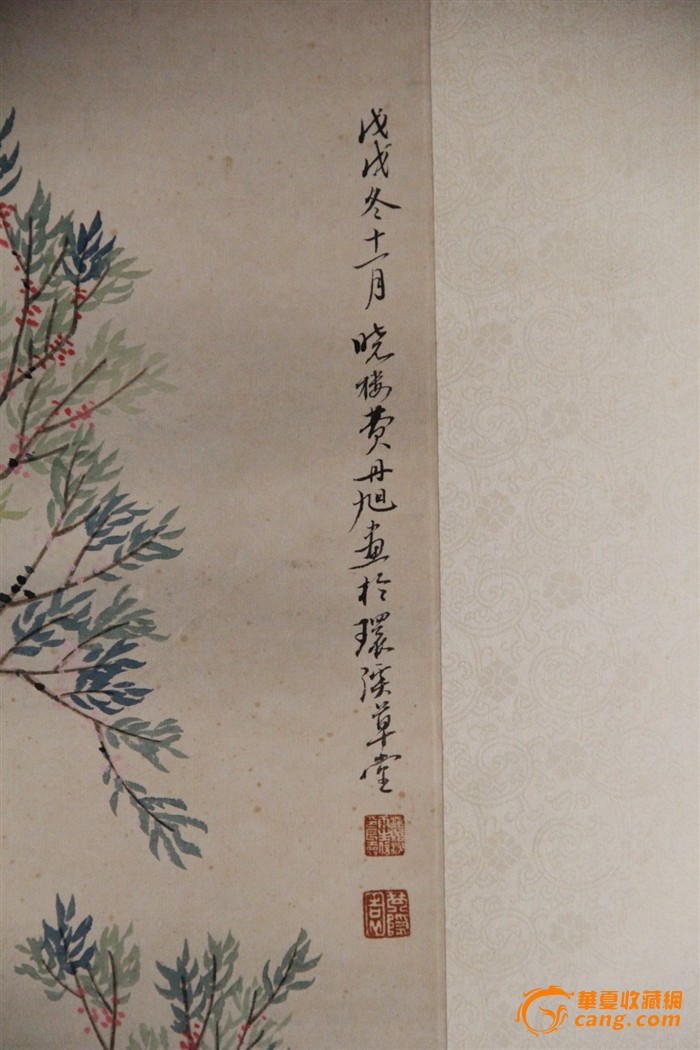 戊戌冬十一月曉楼費丹旭畫於環溪草堂
華夏收藏網
cang.com